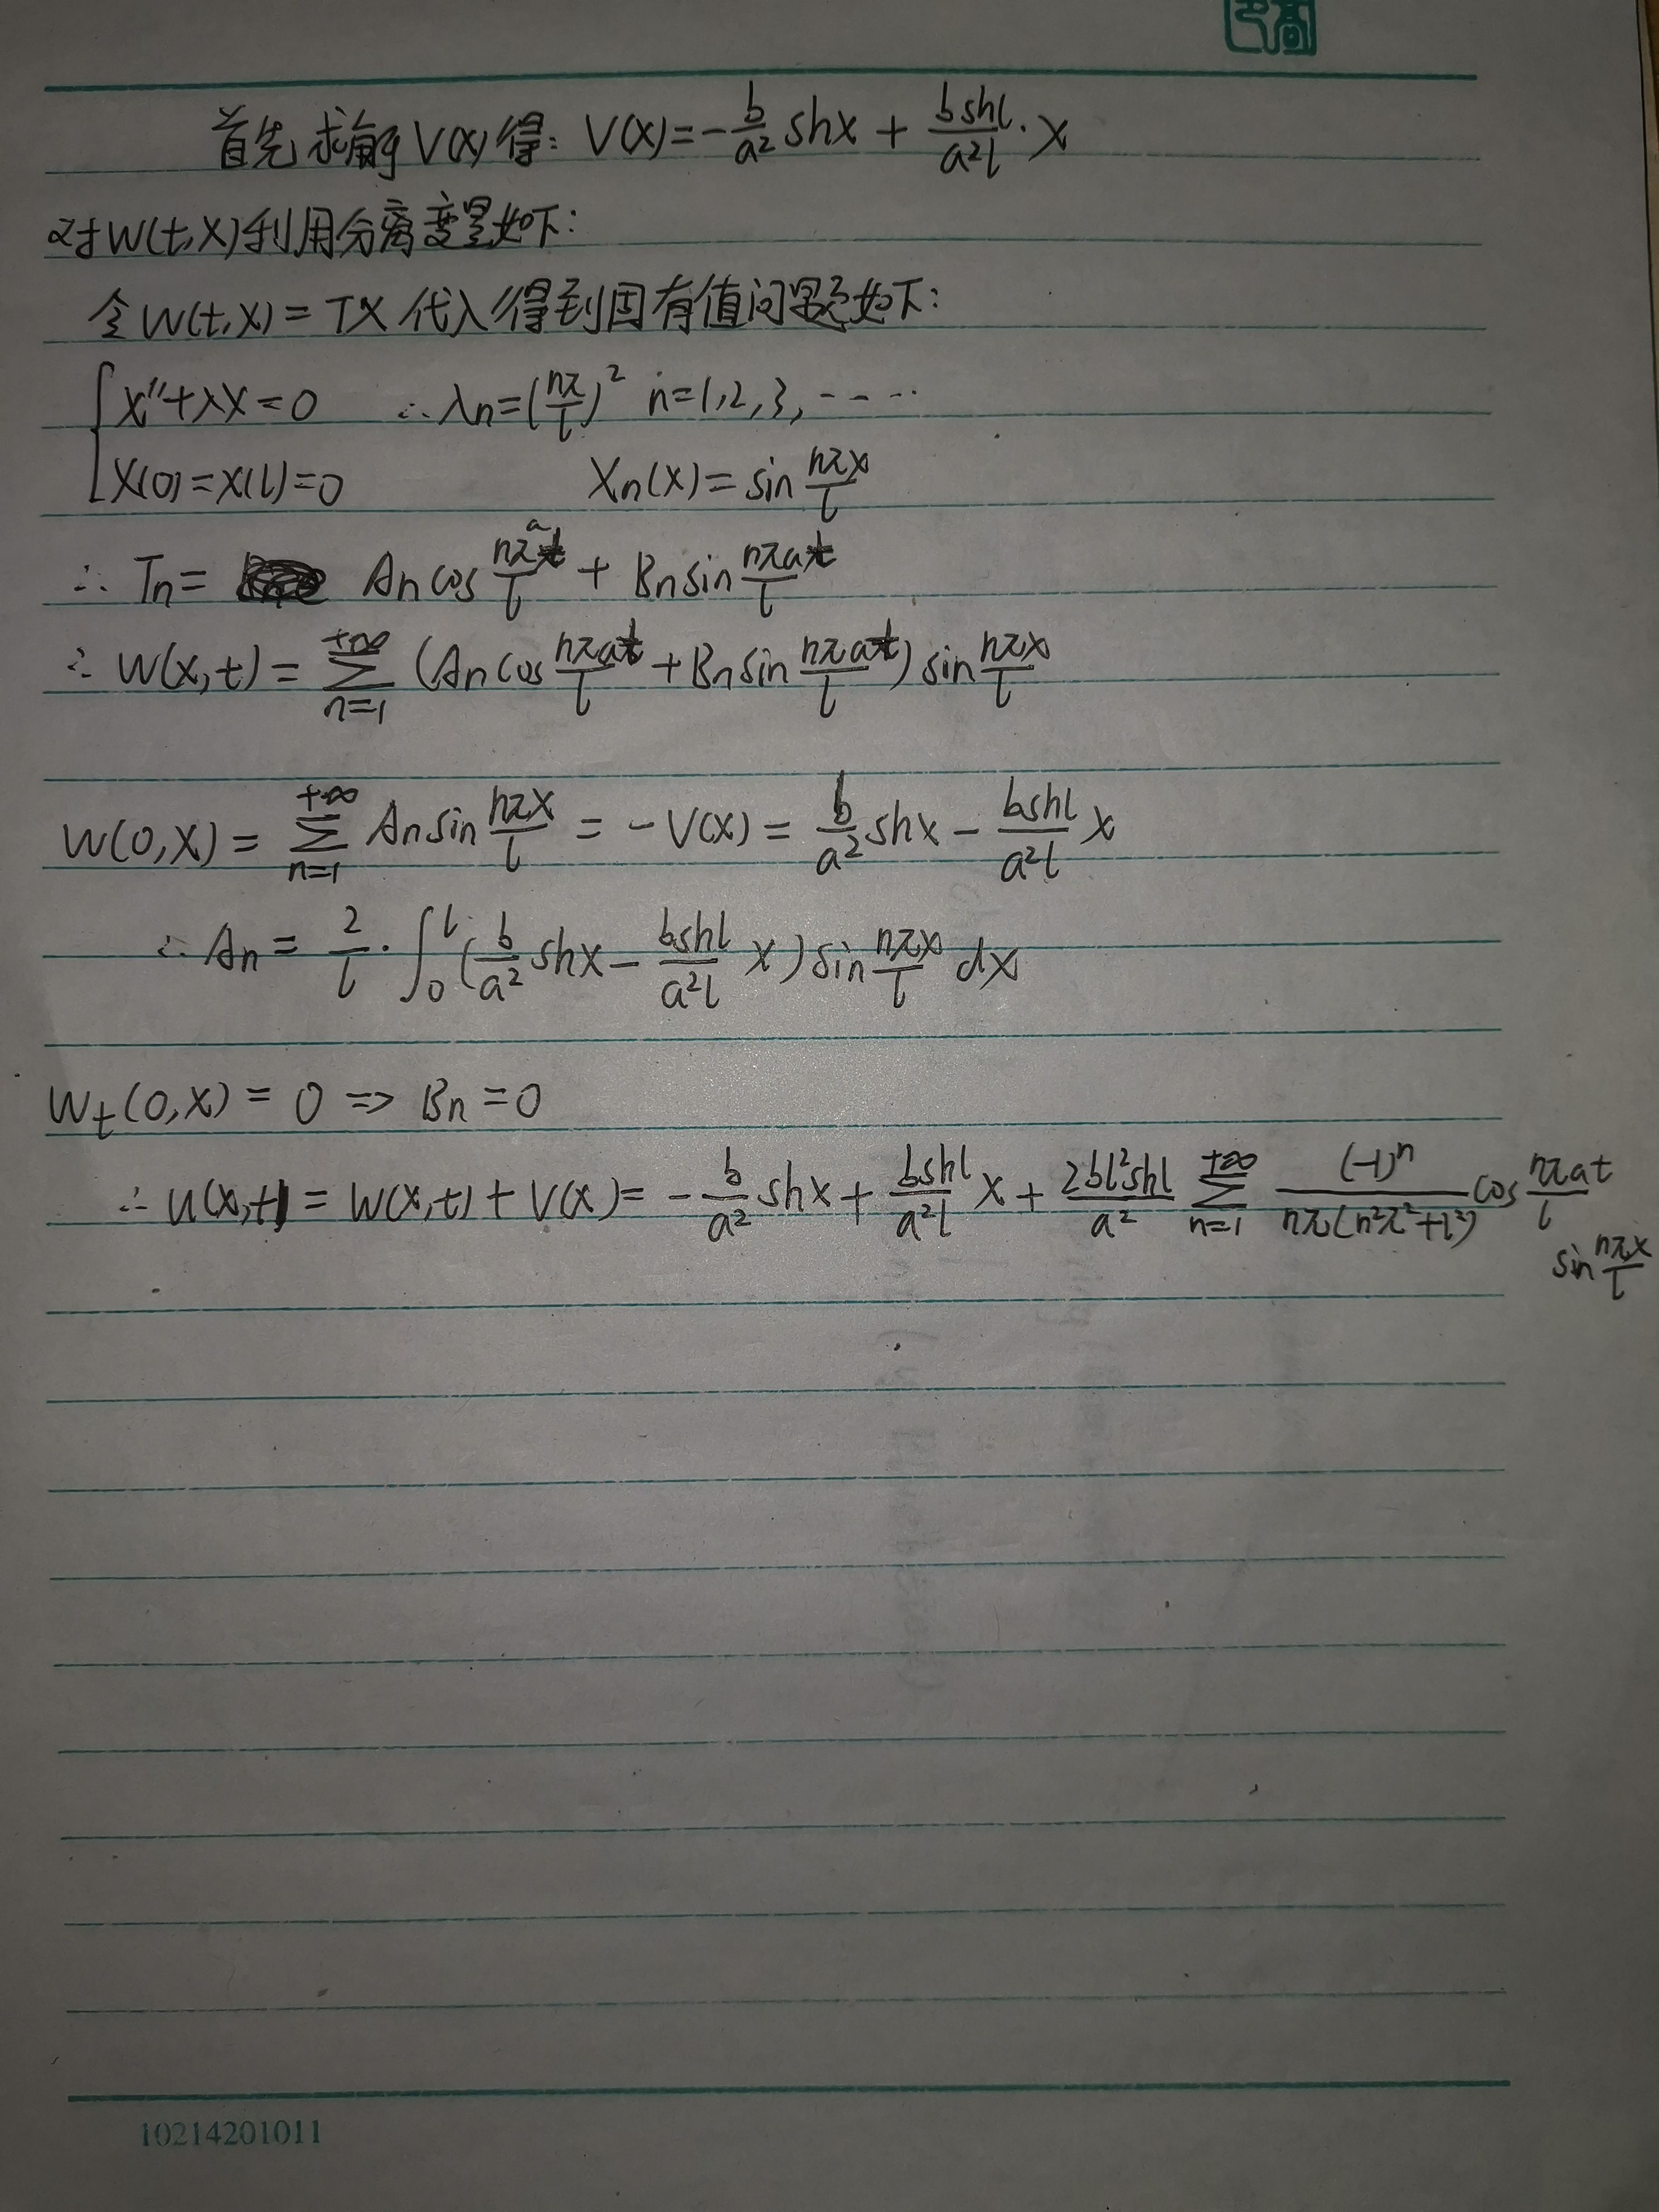 首先求解V(x)得: V(x)=-\frac{b}{a²}shx+\frac{bshl}{a²l}·x
对W(t,x)利用分离变量如下:
令W(t,x)=TX代入得到固有值问题如下:
X''+λX=0 ∴λn=(\frac{nπ}{l})² n=1,2,3,----
X(0)=X(l)=0 Xn(x)=sin\frac{nπx}{l}
∴Tn= Ancos\frac{nπat}{l}+Bnsin\frac{nπat}{l}
∴W(x,t)=\sum_{n=1}^{+∞}(Ancos\frac{nπat}{l}+Bnsin\frac{nπat}{l})sin\frac{nπx}{l}
W(0,x)=\sum_{n=1}^{+∞}Ansin\frac{nπx}{l}=-V(x)=\frac{b}{a²}shx-\frac{bshl}{a²l}x
∴An=\frac{2}{l}·\int_0^l(\frac{b}{a²}shx-\frac{bshl}{a²l}x)sin\frac{nπx}{l}dx
Wt(0,x)=0⇒Bn=0
∴u(x,t)=W(x,t)+V(x)=-\frac{b}{a²}shx+\frac{bshl}{a²l}x+\frac{2bl²shl}{a²}\sum_{n=1}^{+∞}\frac{(-1)^n}{nπ(n²π²+l²)}cos\frac{nπat}{l}
sin\frac{nπx}{l}
10214201011